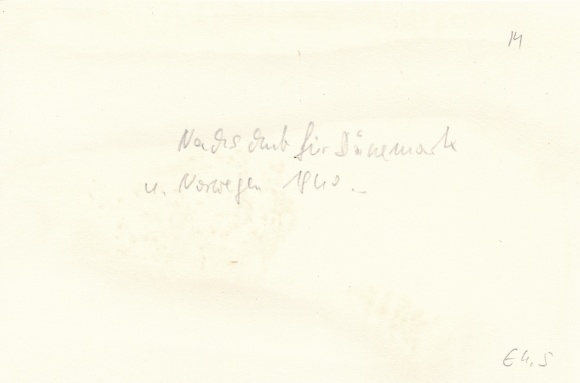 14
Nachschub für Dänemark
u. Norwegen 1940.
E4,5